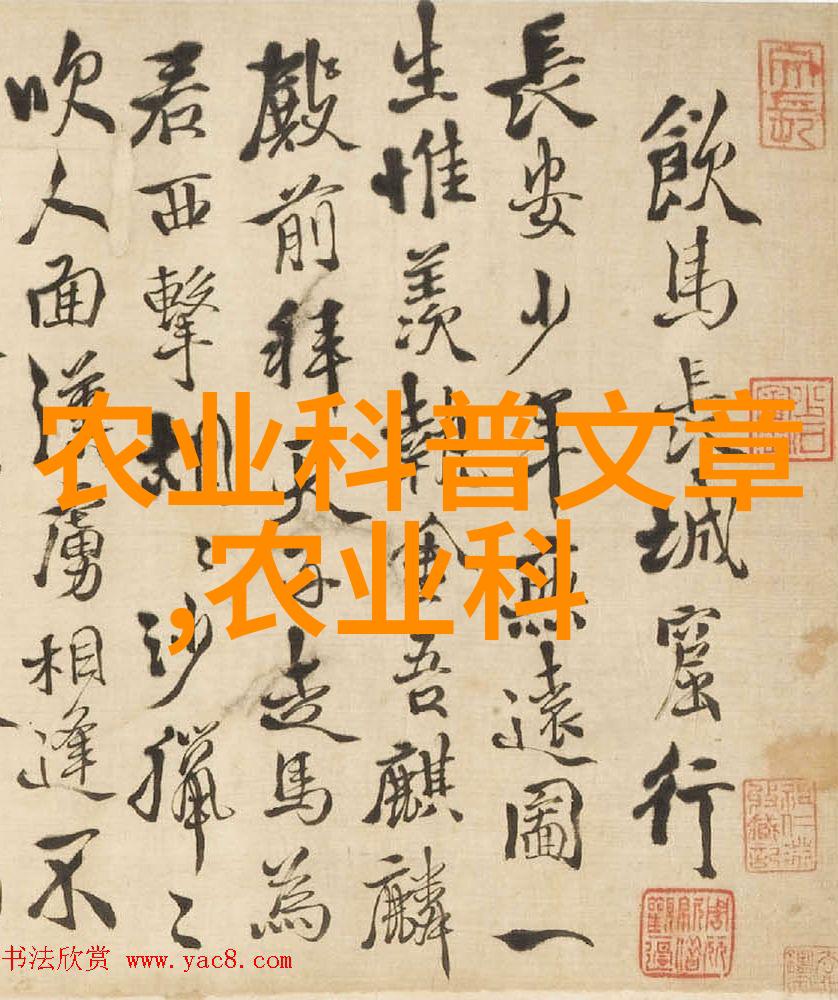 飲馬長城窟行
長安少年無遠圖一
生惟羨執金吾麒麟
殿前拜天子走馬為
君西擊胡〻沙獵〻
吹人面漢虜相逢不
农业科普文章
,农业科
书法欣赏 www.yac8.com